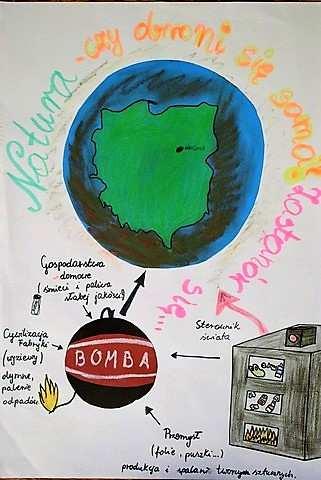 Natura - czy obroni się sama? Zastanów się...
Gospodarstwa
domowe
(śmieci i paliwa
słabej jakości)
Cywilizacja
Fabryki
(wyziewy)
dymne,
palenie
odpadów
BOMBA
Sterownik
świata
Przemysł
(folie, puszki...)
produkcja i spalanie tworzyw sztucznych.